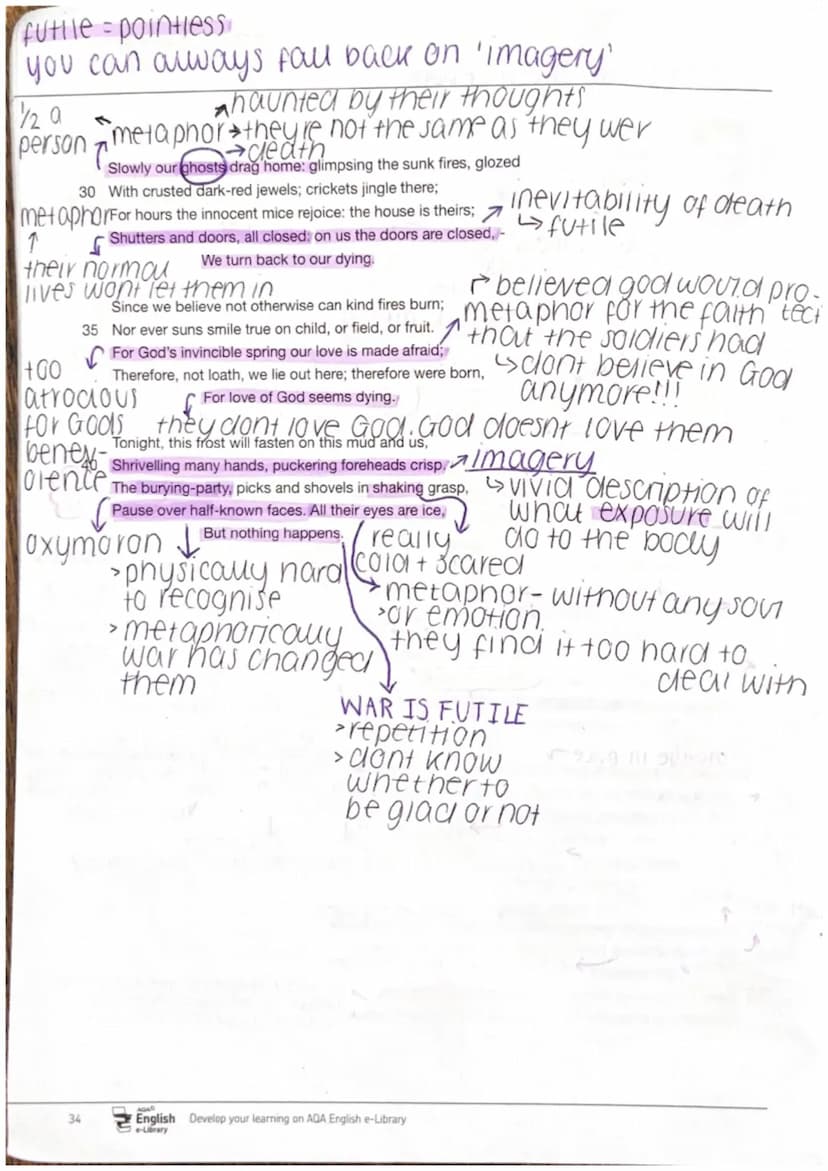 futile = pointless
you can always fall back on 'imagery'
haunted by their thoughts
1/2 a
person
metaphor → they're not the same as they wer
→ death
Slowly our ghosts drag home: glimpsing the sunk fires, glozed
30 With crusted dark-red jewels; crickets jingle there;
For hours the innocent mice rejoice: the house is theirs;
Shutters and doors, all closed: on us the doors are closed, -
We turn back to our dying.
inevitability of death
↳ futile
metaphor
↑
their normal
lives wont let them in
Since we believe not otherwise can kind fires burn;
35 Nor ever suns smile true on child, or field, or fruit.
For God's invincible spring our love is made afraid;
Therefore, not loath, we lie out here; therefore were born,
For love of God seems dying.
believed god would pro-
tect
metaphor for the faith
that the soldiers had
↳ dont believe in God
anymore!!!
too
atrocious
for Gods
benev-
olence
they dont love God. God doesnt love them
Tonight, this frost will fasten on this mud and us,
40 Shrivelling many hands, puckering foreheads crisp.
The burying-party, picks and shovels in shaking grasp,
Pause over half-known faces. All their eyes are ice,
But nothing happens.
imagery
↳ vivid description of
what exposure will
do to the body
oxymoron
> physically hard
to recognise
> metaphorically
war has changed
them
really
cold + scared
> metaphor - without any soul
> or emotion.
they find it too hard to
deal with
WAR IS FUTILE
> repetition
> dont know
whether to
be glad or not
34
AQA
English
e-Library
Develop your learning on AQA English e-Library